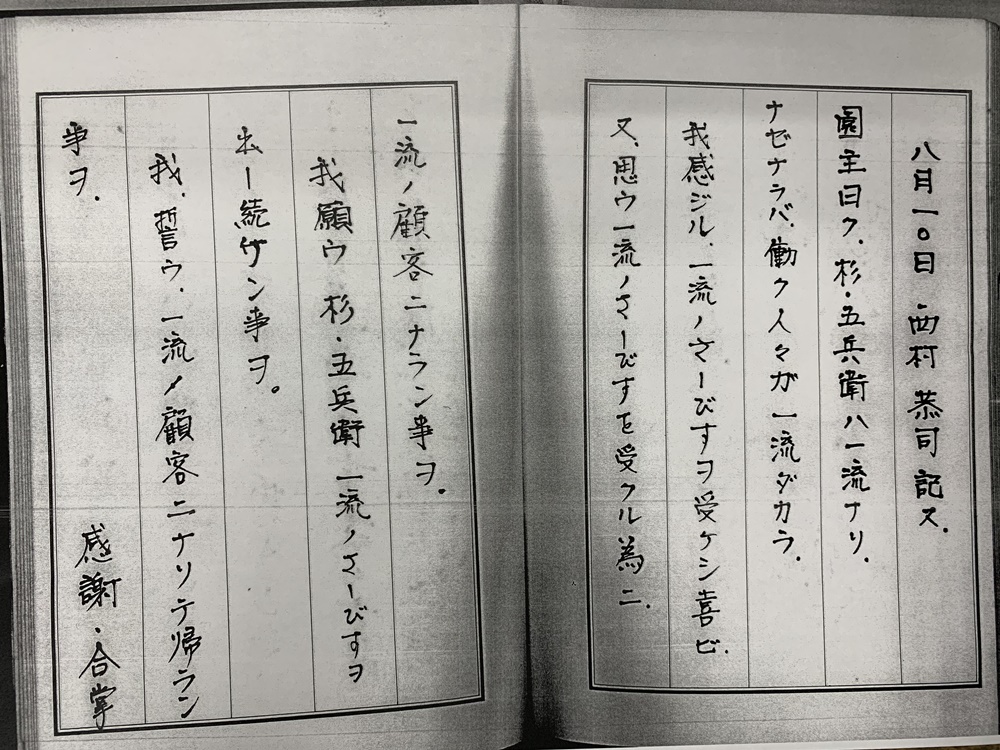 八月一〇日 西村 恭司 記ス.
園主曰ク. 杉・五兵衛ハ一流ナリ.
ナゼナラバ、働ク人々ガ一流ダカラ.
我感ジル. 一流ノさーびすヲ受ケシ喜ビ.
又、思ウ一流ノさーびすを受クル為ニ.
一流ノ顧客ニナラン事ヲ.
我願ウ 杉・五兵衛 一流ノさーびすヲ
出ー続ケン事ヲ。
我. 誓ウ. 一流ノ顧客ニナリテ帰ラン
事ヲ. 感謝・合掌